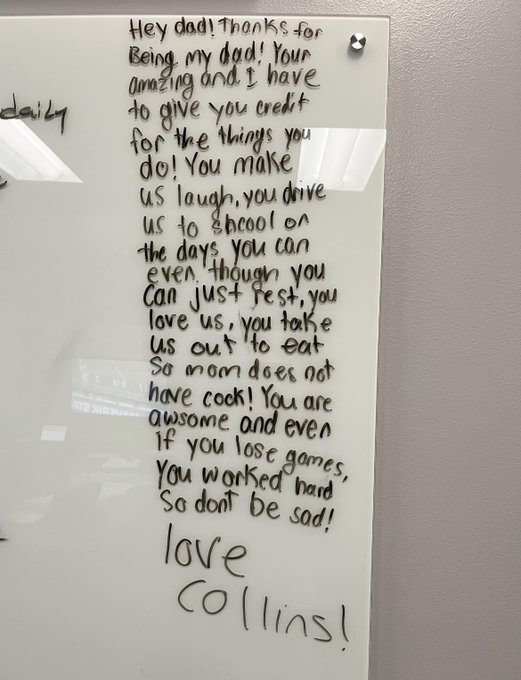 Hey dad! Thanks for
Being my dad! Your
amazing and I have
to give you credit
for the things you
do! You make
us laugh, you drive
us to shcool on
the days you can
even though you
can just rest, you
love us, you take
us out to eat
So mom does not
have cock! You are
awsome and even
if you lose games,
You worked hard
So dont be sad!
love
collins!
daily